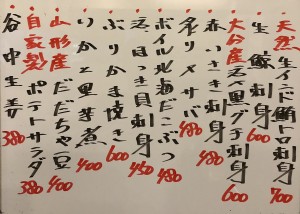 天然生インド鮪トロ刺身 700
生鯨刺身 600
大分産活〆黒グチ刺身 600
赤いさき刺身 480
炙り〆サバ 480
ボイル北海だこぶつ 480
活ほっき貝刺身 450
ぶりかま焼き 600
いかと里芋煮 400
山形産だだちゃ豆 400
自家製ポテトサラダ 380
谷中生姜 380